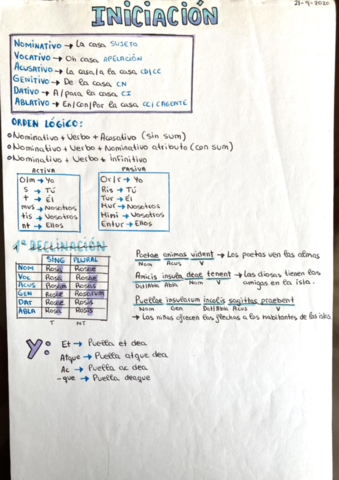 21-9-2020
INICIACIÓN
NOMINATIVO → La casa SUJETO
VOCATIVO → Oh casa APELACIÓN
ACUSATIVO → La casa/a la casa CD/CC
GENITIVO → De la casa CN
DATIVO → A/para la casa CI
ABLATIVO → En/con/Por la casa CC/CAGENTE
ORDEN LÓGICO:
Nominativo + Verbo + Acusativo (sin sum)
Nominativo + Verbo + Nominativo atributo (con sum)
Nominativo + Verbo + infinitivo
ACTIVA
O/m → Yo
S → Tú
t → Él
mus → Nosotros
tis → Vosotros
nt → Ellos
PASIVA
Or/r → Yo
Ris → Tú
Tur → Él
Mur → Nosotros
Mini → Vosotros
Entur → Ellos
1ª DECLINACIÓN
SING PLURAL
NOM Rosa Rosae
VOC Rosa Rosae
ACUS Rosam Rosas
GEN Rosae Rosarum
DAT Rosae Rosis
ABLA Rosa Rosis
T NT
Poetae animas vident → Los poetas ven las almas
Nom Acus V
Amicis insula deae tenent → Las diosas tienen las amigas en la isla.
Dat/Abla Abla Nom V
Puellae insularum incolis sagittas praebent
Nom Gen Dat/Abla Acus V
→ Las niñas ofrecen las flechas a los habitantes de las islas
Y:
Et → Puella et dea
Atque → Puella atque dea
Ac → Puella ac dea
-que → Puella deaque